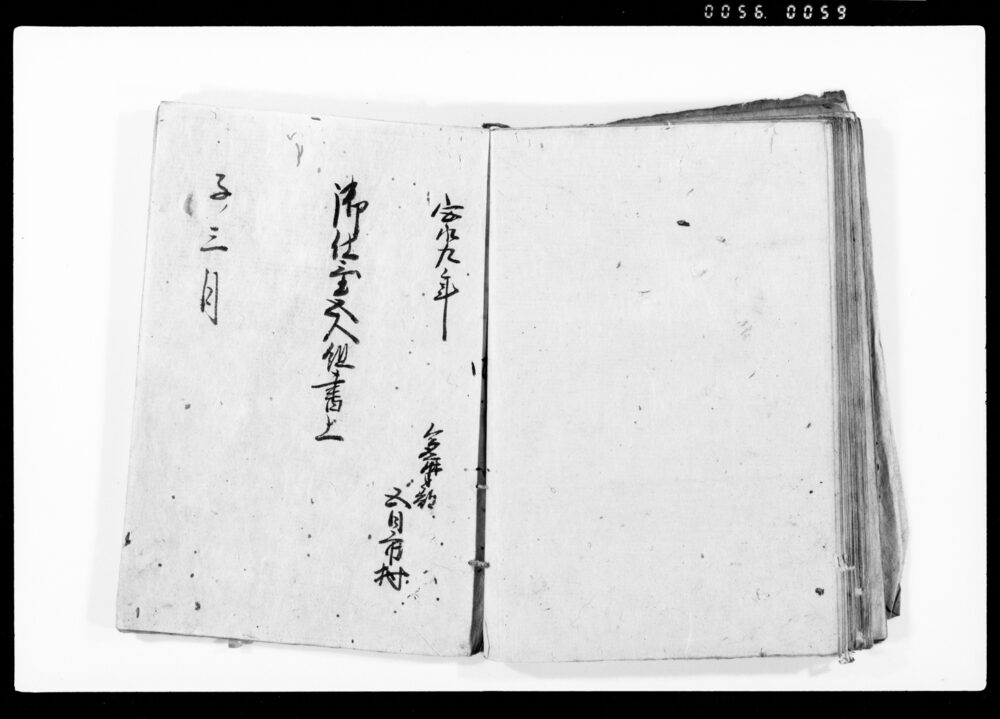 0056. 0059
安永九年
郡
五日市村
御仕置五人組書上
子ノ三月